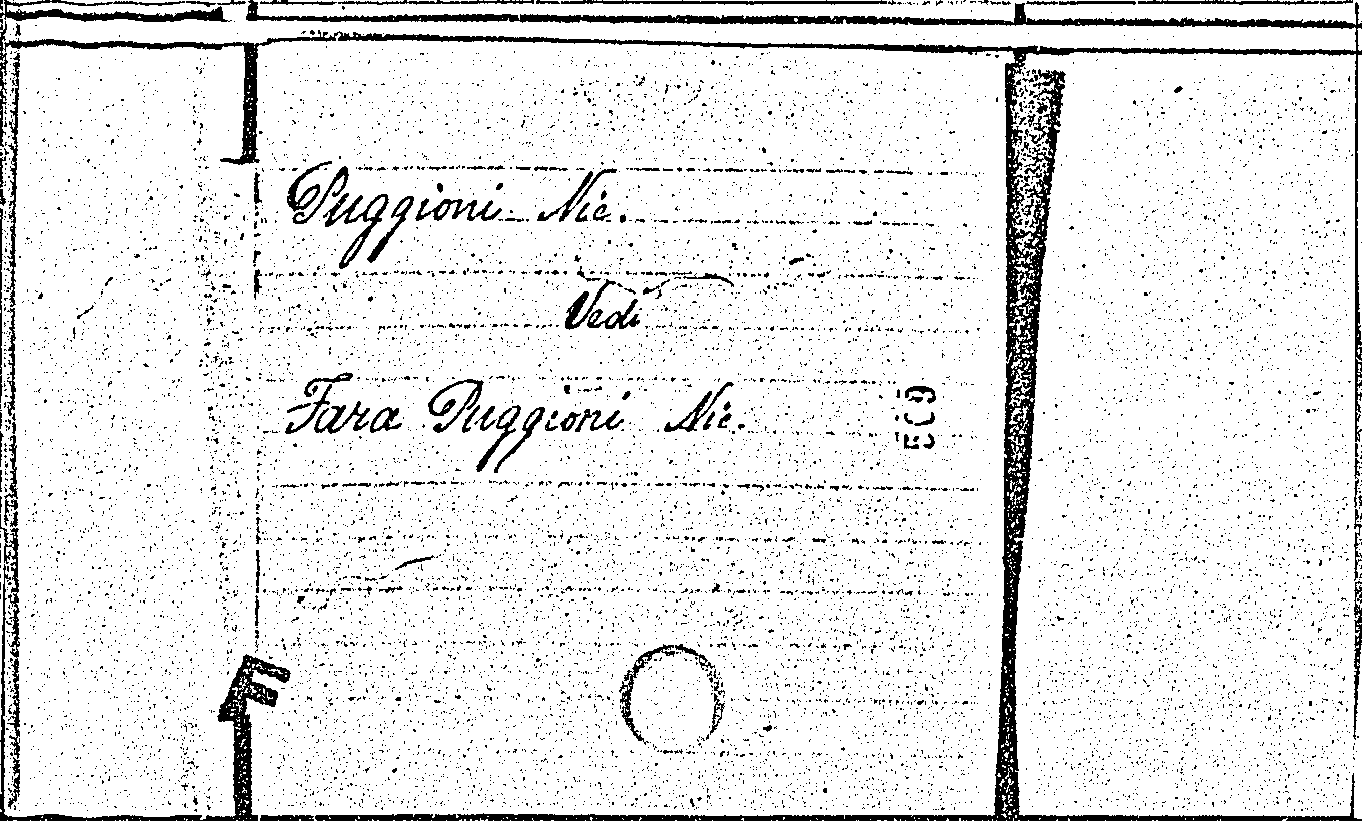 Puggioni Nic.
Vedi
Fara Puggioni Nic.
F